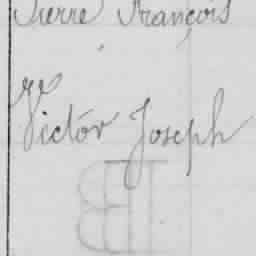 Pierre François
Victor Joseph